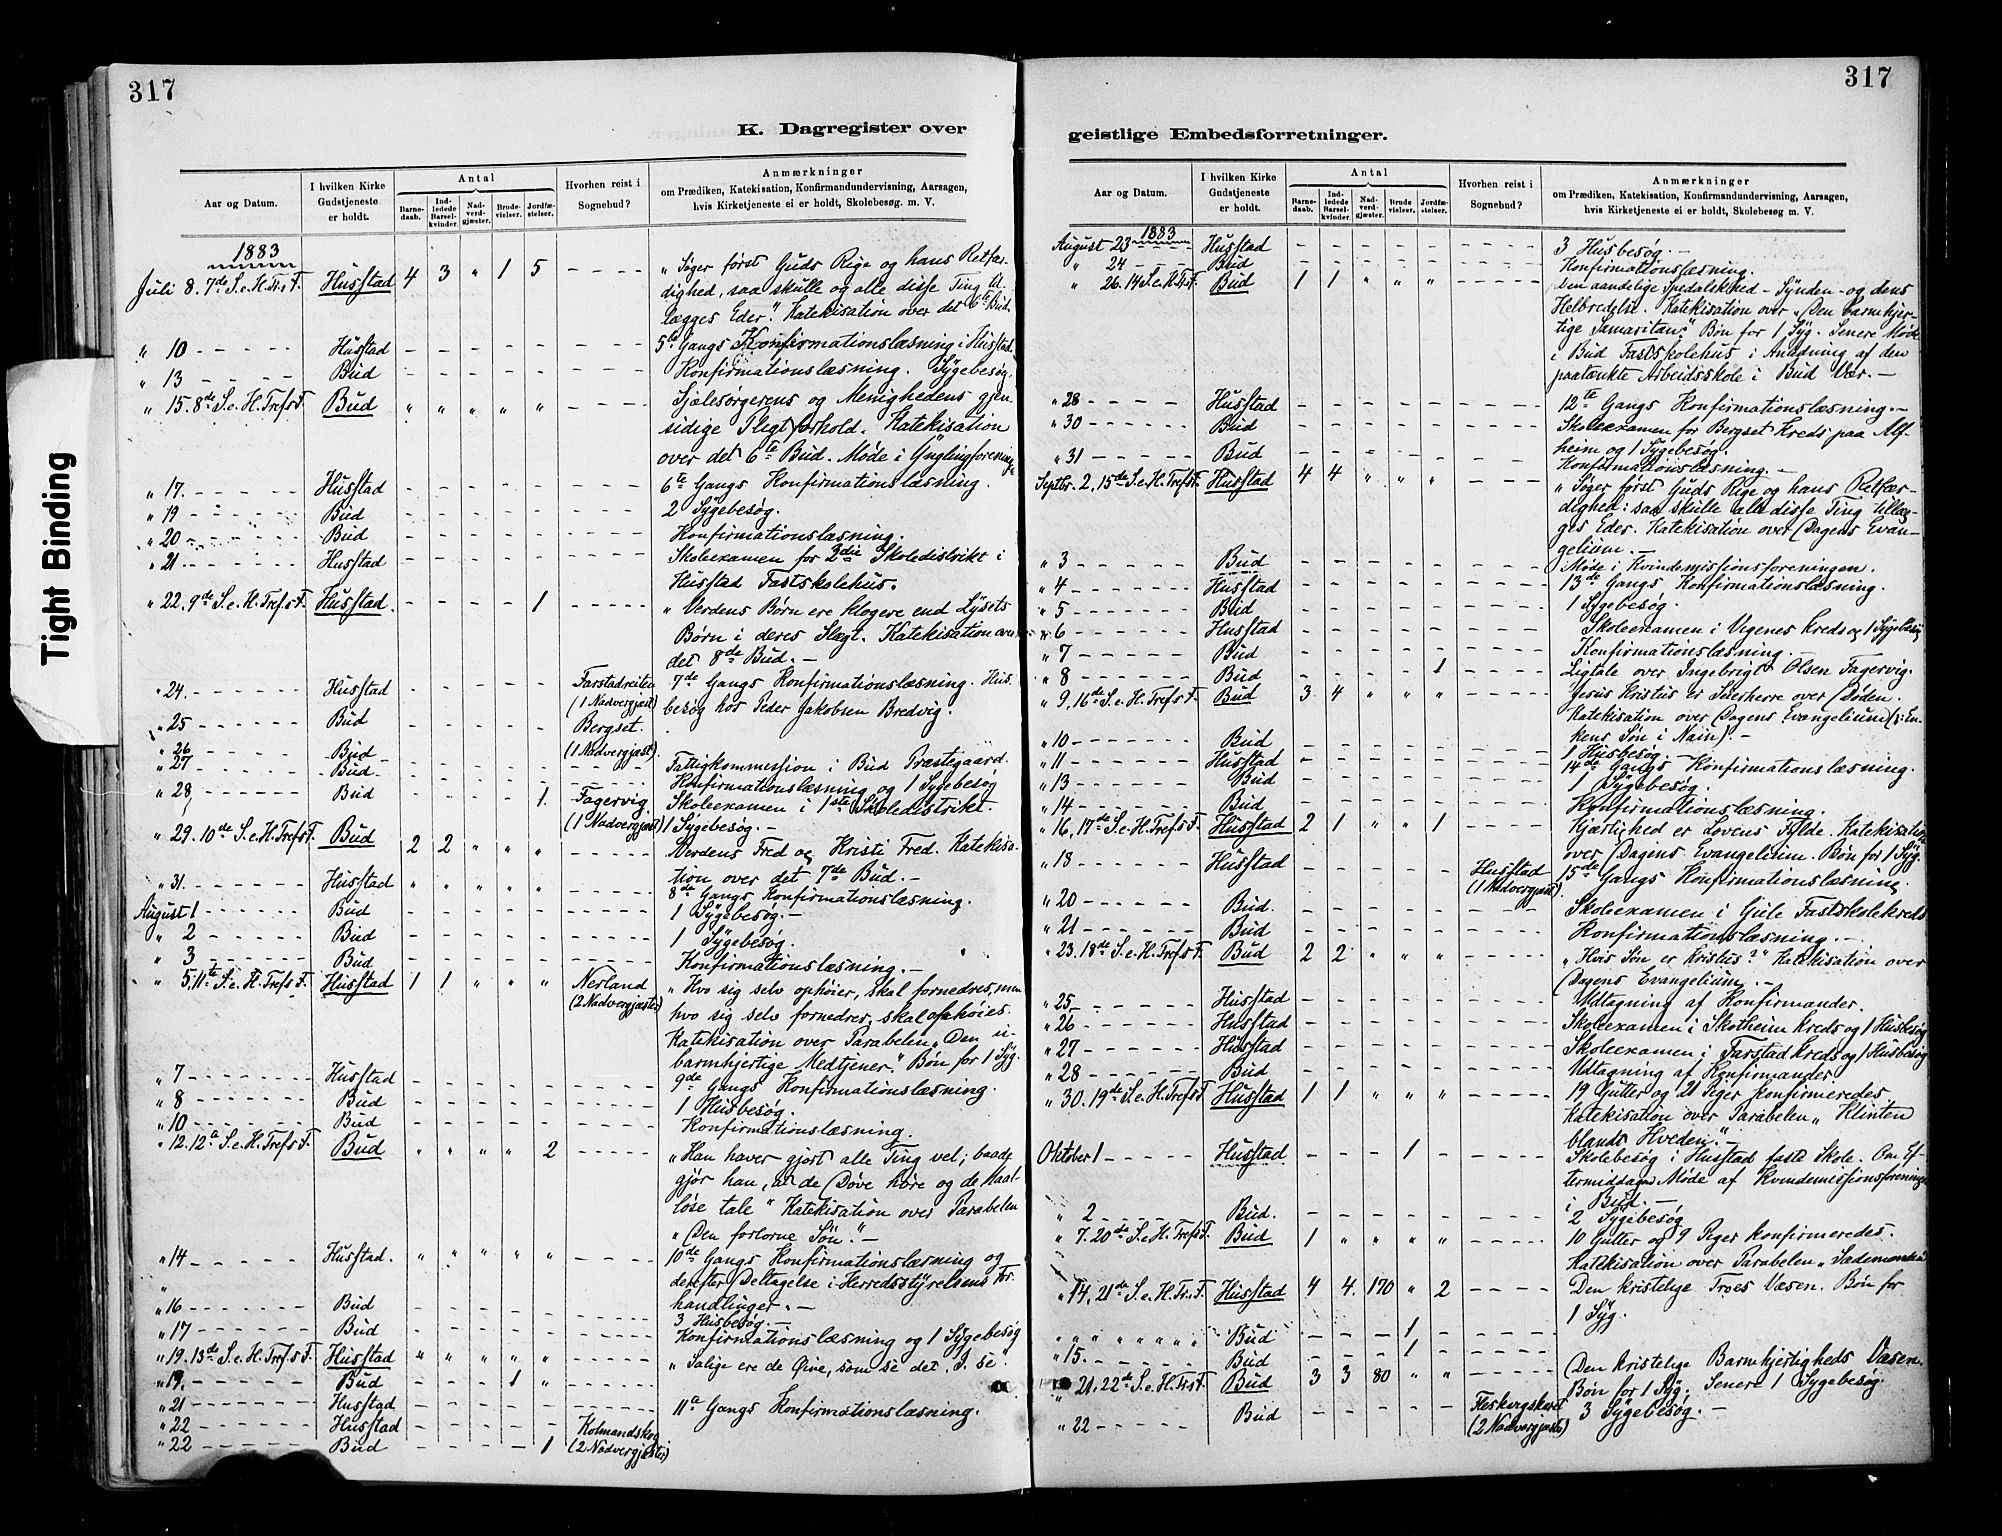 317
K. Dagregister over
Aar og Datum.
I hvilken Kirke Gudstjeneste er holdt.
Antal
Barne-daab.
Ind-ledede Barsel-kvinder.
Nad-verd-gjæster.
Brude-vielser.
Jordfæ-stelser.
Hvorhen reist i Sognebud?
Anmærkninger
om Prædiken, Katekisation, Konfirmandundervisning, Aarsagen,
hvis Kirketjeneste ei er holdt, Skolebesøg. m. V.
1883
Juli 8. 7de S. e. H. Tr. F. Husstad 4 3 " 1 5 - - - - "Søger først Guds Rige og hans Retfær-
dighed, saa skulle og alle disse Ting til-
lægges Eder." Katekisation over det 6te Bud.
" 10 - - - - - Husstad - - - - - 5te Gangs Konfirmationslæsning i Husstad.
" 13 - - - - - Bud - - - - - Konfirmationslæsning. Sygebesøg.
" 15. 8de S. e. H. Trefs F. Bud " " " " " - - - Sjælesørgerens og Menighedens gjen-
sidige Pligtforhold. Katekisation
over det 6te Bud. Møde i Ynglingforeninge
" 17. - - - - - Husstad - - - - - 6te Gangs Konfirmationslæsning.
" 19 - - - - - Bud - - - - - 2 Sygebesøg.
" 20 - - - - - Bud - - - - - Konfirmationslæsning.
" 21 - - - - - Husstad - - - - - Skoleexamen for 2die Skoledistrikt i
Husstad Fastskolehus.
" 22. 9de S. e. H. Trefs F. Husstad. - - - - 1 - - - - - "Verdens Børn ere klogere end Lysets
Børn i deres Slægt. Katekisation over
det 8de Bud. -
" 24. - - - - Husstad - - - - - Farstadreiten 7de Gangs Konfirmationslæsning. Hus-
(1 Nadvergjæst) besøg hos Peder Jakobsen Bredvig.
" 25 - - - - Bud - - - - - Bergset.
(1 Nadvergjæst)
" 26 - - - - Bud - - - - -
" 27 - - - - Bud - - - - - Fattigkommission i Bud Præstegaard.
Konfirmationslæsning og 1 Sygebesøg
" 28, - - - - Bud - - - - 1. Fagervig Skoleexamen i 1ste Skoledistrikt.
(1 Nadvergjæst) 1 Sygebesøg. -
" 29. 10de S. e. H. Trefs F. Bud 2 2 " " " - - - - - Verdens Fred og Kristi Fred. Katekisa-
tion over det 7de Bud. -
" 31. - - - - Husstad " " " " " - - - - - 8de Gangs Konfirmationslæsning.
August 1 - - - - Bud - - - - - 1 Sygebesøg. -
" 2 - - - - - Bud - - - - - 1 Sygebesøg.
" 3 - - - - - Bud - - - - - Konfirmationslæsning. -
" 5, 11te S. e. H. Trefs F. Husstad 1 1 " " " Nerland "Hvo sig selv ophøier, skal fornedres, men
(2 Nadvergjæster) hvo sig selv fornedrer, skal ophøies.
Katekisation over Parabelen "Den u-
barmhjertige Medtjener." Bøn for 1 Syg.
" 7 - - - - - Husstad - - - - - 9de Gangs Konfirmationslæsning.
" 8 - - - - - Bud - - - - - 1 Husbesøg.
" 10 - - - - - Bud - - - - - Konfirmationslæsning.
" 12. 12te S. e. H. Trefs F. Bud " " " " 2 - - - - - "Han haver gjort alle Ting vel; baade
gjør han, at de Døve høre og de Maal-
løse tale" Katekisation over Parabelen
"Den forlorne Søn". -
" 14 - - - - - Husstad. " " " " " - - - - 10de Gangs Konfirmationslæsning og
derefter Deltagelse i Herredsstyrelsens For-
handlinger. -
" 16 - - - - - Bud - - - - - 3 Husbesøg. -
" 17 - - - - - Bud - - - - - Konfirmationslæsning og 1 Sygebesøg
" 19. 13de S. e. H. Trefs F. Husstad " " " " " - - - - - "Salige ere de Øine, som se det I se."
" 19. - - - - - Bud - - - 1 " - - - - -
" 21 - - - - - Husstad - - - - - 11te Gangs Konfirmationslæsning.
" 22 - - - - - Husstad - - - - -
" 22 - - - - - Bud - - - - 1 Kolmandskog
(2 Nadvergjæster)
317
geistlige Embedsforretninger.
Aar og Datum.
I hvilken Kirke Gudstjeneste er holdt.
Antal
Barne-daab.
Ind-ledede Barsel-kvinder.
Nad-verd-gjæster.
Brude-vielser.
Jordfæ-stelser.
Hvorhen reist i Sognebud?
Anmærkninger
om Prædiken, Katekisation, Konfirmandundervisning, Aarsagen,
hvis Kirketjeneste ei er holdt, Skolebesøg. m. V.
1883
August 23 - - - Husstad - - - - - 3 Husbesøg. -
" 24 - - - Bud - - - - - Konfirmationslæsning.
" 26. 14 S. e. H. Tr. F. Bud 1 1 " " " - - - - Den aandelige Spedalskhed - Synden - og dens
Helbredelse. Katekisation over "Den barmhjer-
tige Samaritan." Bøn for 1 Syg. Senere Møde
i Bud Fastskolehus i Anledning af den
paatænkte Arbeidsskole i Bud Vær. -
" 28 - - - - Husstad - - - - - 12te Gangs Konfirmationslæsning. -
" 30 - - - - Bud - - - - - Skoleexamen for Bergset Kreds paa Alf-
heim og 1 Sygebesøg.
" 31 - - - - Bud - - - - - Konfirmationslæsning. -
Septbr. 2, 15de S. e. H. Trefs F. Husstad 4 4 " " " - - - - "Søger først Guds Rige og hans Retfær-
dighed: saa skulle alle disse Ting tillæg-
ges Eder. Katekisation over Dagens Evan-
gelium. -
" 3 - - - - - Bud - - - - - Møde i Kvindemissionsforeningen.
" 4 - - - - - Husstad - - - - - 13de Gangs Konfirmationslæsning.
" 5 - - - - - Bud - - - - - 1 Sygebesøg.
" 6 - - - - - Husstad - - - - - Skoleexamen i Vigenes Kreds og 1 Sygebesøg
" 7 - - - - - Bud - - - - - Konfirmationslæsning.
" 8 - - - - - Bud - - - - 1 - - - - Ligtale over Ingebrigt Olsen Fagervig.
" 9, 16de S. e. H. Trefs F. Bud 3 4 " " " - - - - Jesus Kristus er Seierherre over Døden.
Katekisation over Dagens Evangelium (: En-
kens Søn i Nain). -
" 10 - - - - - Bud - - - - - 1 Husbesøg
" 11 - - - - - Husstad - - - - - 14de Gangs Konfirmationslæsning.
" 13 - - - - - Bud - - - - - 1 Sygebesøg.
" 14 - - - - - Bud - - - - - Konfirmationslæsning.
" 16, 17de S. e. H. Trefs F. Husstad 2 1 " " 1 - - - - Kjærlighed er Lovens Fylde. Katekisation
over Dagens Evangelium. Bøn for 1 Syg.
" 18 - - - - - Husstad - - - - - Husstad 15de Gangs Konfirmationslæsning.
(1 Nadvergjæst)
" 20 - - - - - Bud. - - - - - Skoleexamen i Gule Fastskolekreds
" 21 - - - - - Bud - - - - - Konfirmationslæsning. -
" 23. 18de S. e. H. Trefs F. Bud 2 2 " " " - - - - "Hvis Søn er Kristus?" Katekisation over
Dagens Evangelium. -
" 25 - - - - - Husstad - - - - - Udtagning af Konfirmander.
" 26 - - - - - Husstad - - - - - Skoleexamen i Skotheim Kreds og 1 Husbesøg
" 27 - - - - - Husstad - - - - - Skoleexamen i Farstad Kreds og 1 Husbesøg
" 28 - - - - - Bud - - - - - Udtagning af Konfirmander
" 30. 19de S. e. H. Trefs F. Husstad 1 1 " " " - - - - 19 Gutter og 21 Piger konfirmeredes.
Katekisation over Parabelen "Klinten
blandt Hveden." -
Oktober 1 - - - - Husstad - - - 1 - - - - Skolebesøg i Husstad faste Skole. Om Ef-
termiddagen Møde af Kvindemissionsforeningen
i Bud -
" 2 - - - - Bud. - - - - - 2 Sygebesøg
" 7. 20de S. e. H. Trefs F. Bud 1 " " " " - - - - 10 Gutter og 9 Piger konfirmeredes.
Katekisation over Parabelen "Sædemanden
" 14, 21de S. e. H. Tr. F. Husstad 4 4. 170 " 2 - - - - Den kristelige Troes Væsen. Bøn for
1 Syg.
" " " " " " " Bud - - - 1 - - - - -
" 15. - - - - Bud - - - 1 - - - - -
" 21, 22de S. e. H. Trs F. Bud 3 3 80 " " - - - - Den kristelige Barmhjertigheds Væsen.
Bøn for 1 Syg. Senere 1 Sygebesøg.
" 22 - - - - Bud - - - - - 3 Sygebesøg. -
(2 Nadvergjæster)
Tight Binding